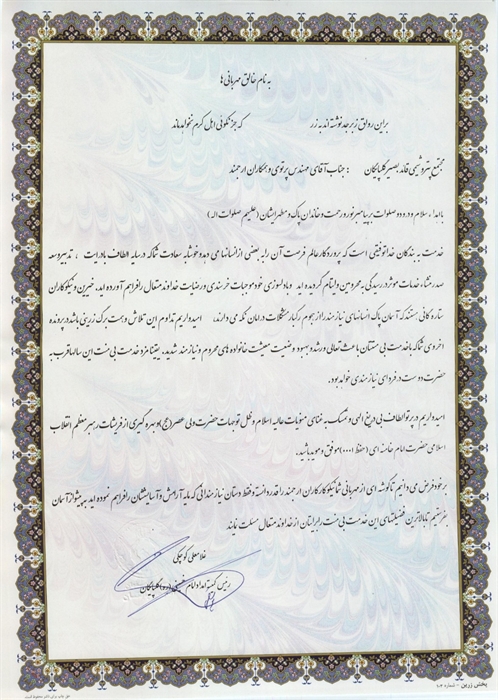 به نام خالق مهربانی ها
بر این رواق زبرجد نوشته اند به زر که جز نکوئی اهل کرم نخواهد ماند
مجتمع پتروشیمی قائد بصیر گلپایگان : جناب آقای مهندس پرتوی و همکاران ارجمند
با اهداء سلام و درود و صلوات بر پیامبر نور و رحمت و خاندان پاک و مطهر ایشان (علیهم صلوات اله)
خدمت به بندگان خدا توفیقی است که پروردگار عالم فرصت آن را به بعضی از انسانها می دهد و خوشا به سعادت شما که در سایه الطاف باریتعالی ، تدبیر و سعه
صدر منشاء خدمات موثر در رسیدگی به محرومین و ایتام گردیده اید و با دلسوزی خود موجبات خرسندی و رضایت خداوند متعال را فراهم آورده اید. خیرین و نیکوکاران
ستارگانی هستند که آسمان پاک انسانهای نیازمند را از هجوم رگبار مشکلات در امان نگه می دارند، امیدواریم تداوم این تلاش و همت برگ زرینی باشد در پرونده
اخروی شما که با خدمت بی منتتان باعث تعالی و رشد و بهبود وضعیت معیشت خانواده های محروم و نیازمند شدید. یقینا مزد خدمت بی منت این سالها قرب به
حضرت دوست در فردای نیازمندی خواهد بود.
امیدواریم در پرتو الطاف بی دریغ الهی و تمسک به غنای منویات عالیه اسلام و ظل توجهات حضرت ولی عصر (عج) و بهره گیری از فرمایشات رهبر معظم انقلاب
اسلامی حضرت امام خامنه ای (حفظ ا...) موفق و موید باشید.
بر خود فرض می دانیم تا گوشه ای از مهربانی شما نیکوکاران ارجمند را قدر دانسته و فقط دستان نیازمندانی که مایه آرامش و آسایششان را فراهم نموده اید به پیشواز آسمان
بفرستیم تا بالاترین فضیلتهای این خدمت بی منت را برایتان از خداوند متعال مسئلت نمایند.
غلامعلی کوچکی
رئیس کمیته امداد امام خمینی (ره) گلپایگان
پخش زرین - شماره ۱۰۴